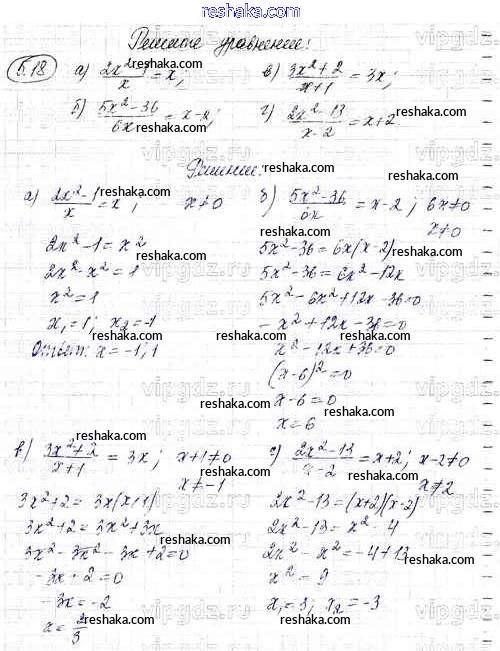 reshaka.com
Решите уравнение:
5.18 а) (2x²-1)/x = x; в) (3x²+2)/(x+1) = 3x;
б) (5x²-36)/6x = x-2; г) (2x²-13)/(x-2) = x+2
Решение:
а) (2x²-1)/x = x; x≠0
2x²-1=x²
2x²-x²=1
x²=1
x₁=1; x₂=-1
Ответ: x=-1; 1
б) (5x²-36)/6x = x-2; 6x≠0
x≠0
5x²-36=6x(x-2)
5x²-36=6x²-12x
5x²-6x²+12x-36=0
-x²+12x-36=0
x²-12x+36=0
(x-6)²=0
x-6=0
x=6
в) (3x²+2)/(x+1) = 3x; x+1≠0
x≠-1
3x²+2=3x(x+1)
3x²+2=3x²+3x
3x²-3x²-3x+2=0
-3x+2=0
-3x=-2
x=2/3
г) (2x²-13)/(x-2) = x+2; x-2≠0
x≠2
2x²-13=(x+2)(x-2)
2x²-13=x²-4
2x²-x²=-4+13
x²=9
x₁=3; x₂=-3
reshaka.com